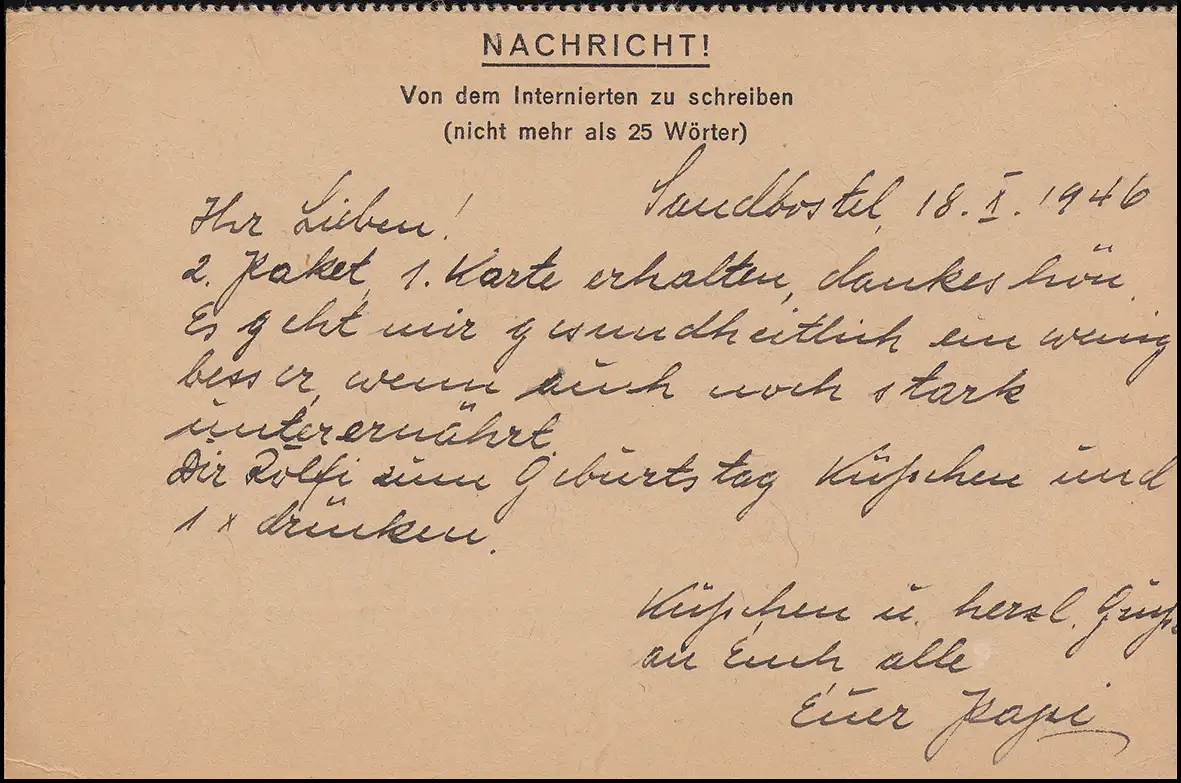 NACHRICHT!
Von dem Internierten zu schreiben
(nicht mehr als 25 Wörter)
Sandbostel, 18. X. 1946
Ihr Lieben!
2. Paket, 1. Karte erhalten, dankeschön.
Es geht mir gesundheitlich ein wenig
besser, wenn auch noch stark
unterernährt.
Dir Rolfi zum Geburtstag Küßchen und
1 x drücken.
Küßchen u. herzl. Grüße
an Euch alle
Euer Papi